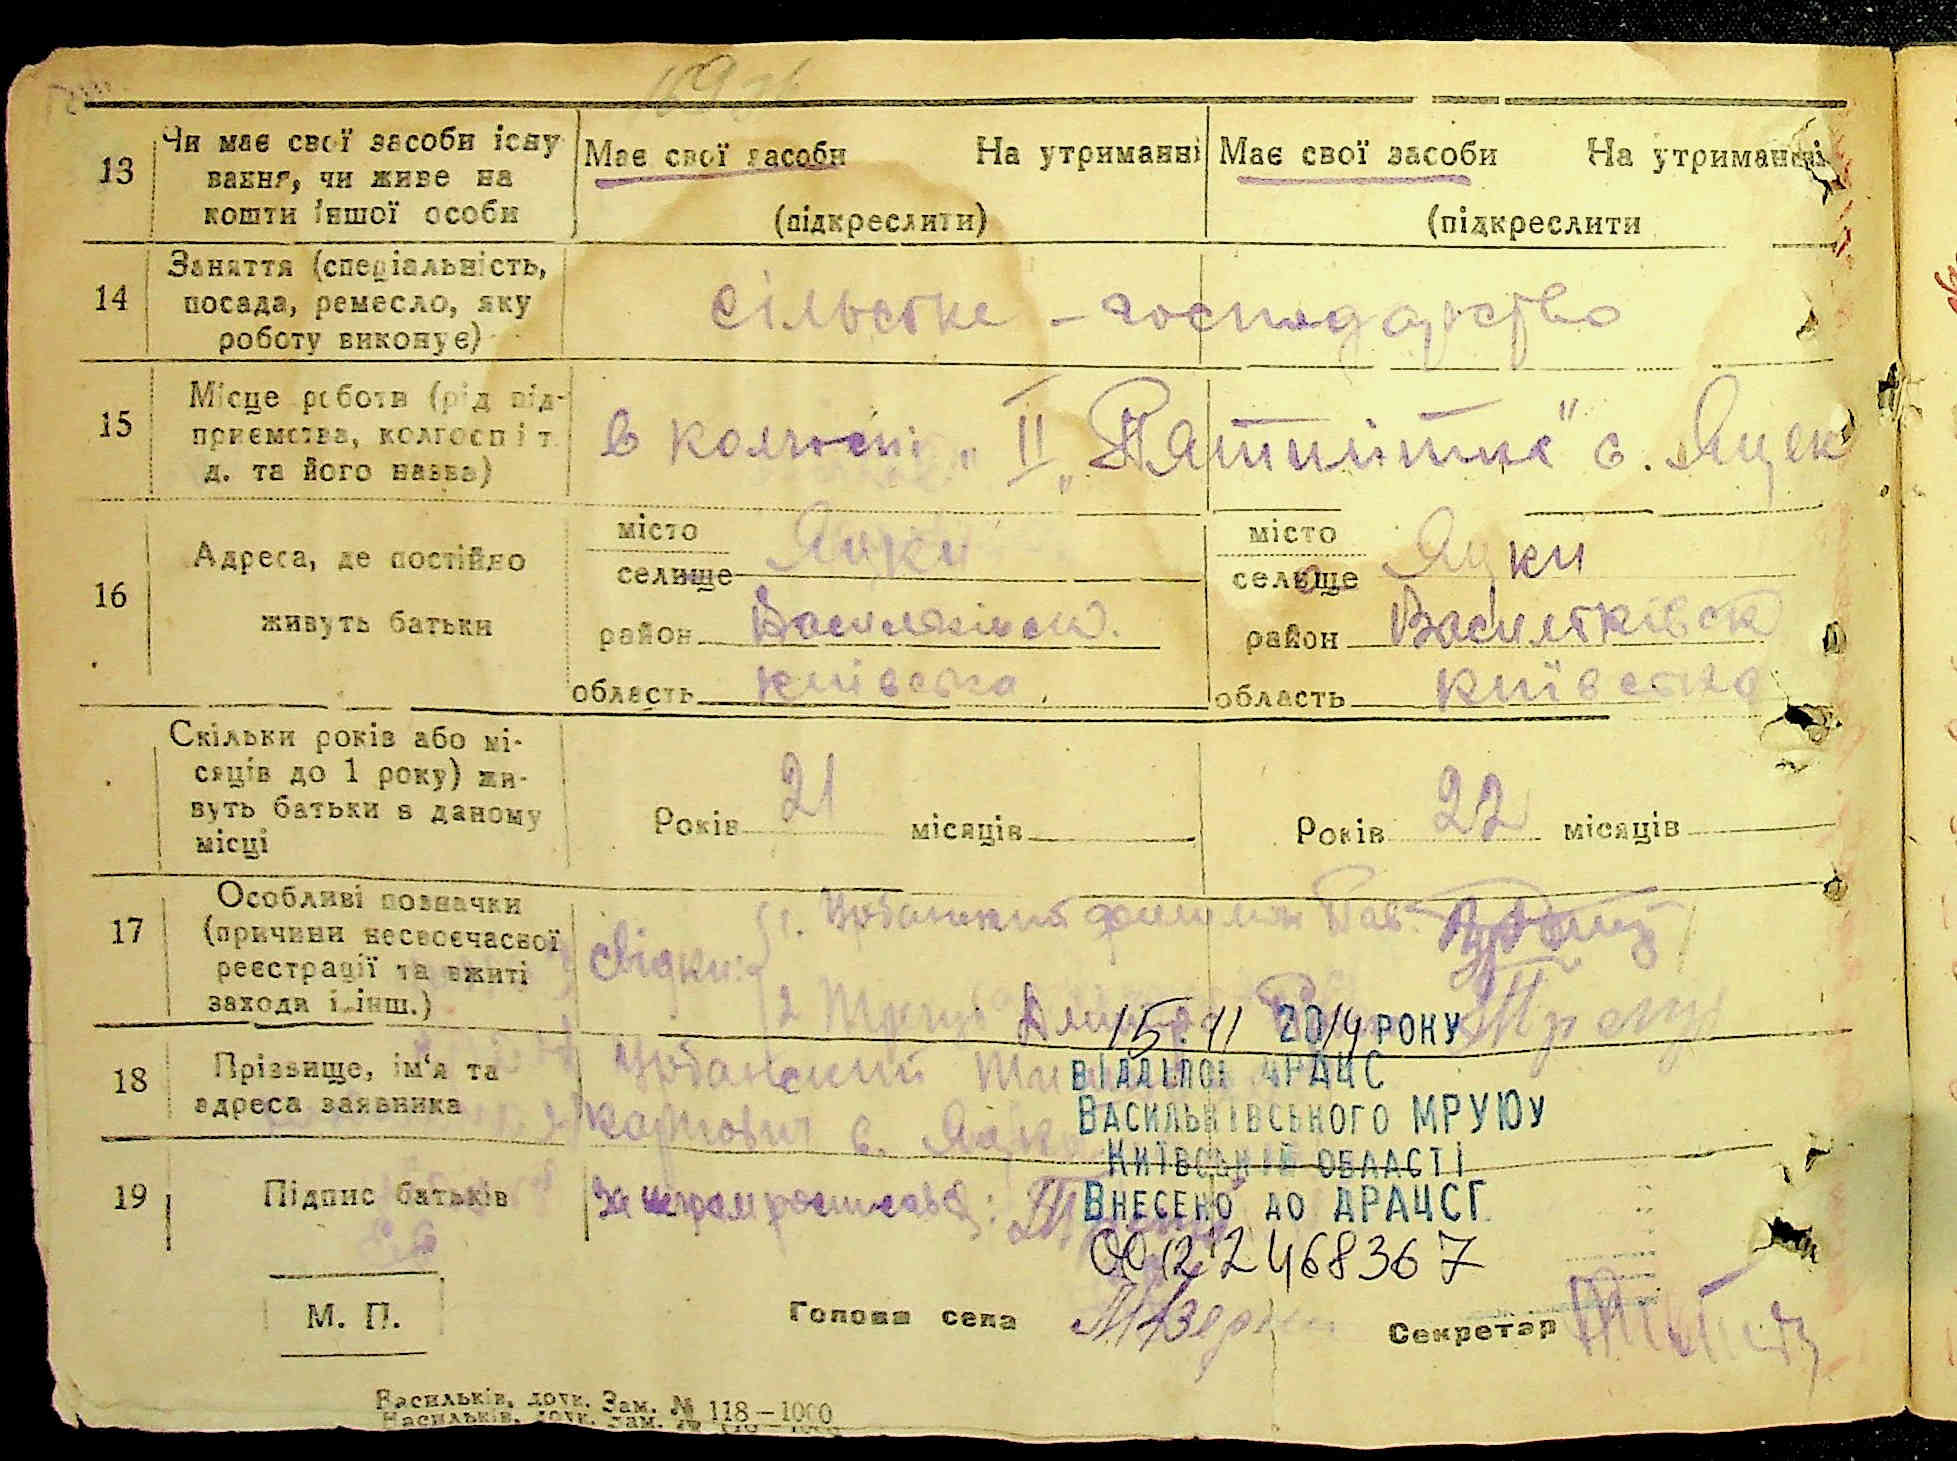 169 зв
13 Чи має свої засоби існу
вання, чи живе на
кошти іншої особи
Має свої засоби На утриманні
(підкреслити)
Має свої засоби На утриманні
(підкреслити
14 Заняття (спеціальність,
посада, ремесло, яку
роботу виконує)
сільське – господарство
15 Місце роботи (рід під-
приємства, колгосп і т.
д. та його назва)
в колгоспі „ II „Пятилітка" с. Яцек
16 Адреса, де постійно
живуть батьки
місто
селище Яцки
район Васильківськ.
область київська
місто
селище Яцки
район Васильківск
область київська
Скільки років або мі-
сяців до 1 року) жи-
вуть батьки в даному
місці
Років 21 місяців
Років 22 місяців
17 Особливі позначки
(причини несвоєчасної
реєстрації та вжиті
заходи і інш.)
свідки: 1. Урбанский Пав.
2
15. 11 2014 РОКУ
18 Прізвище, ім'я та
адреса заявника
Урбанский
Карпович с. Яцки
ВІДДІЛОМ ДРАЦС
ВАСИЛЬКІВСЬКОГО МРУЮУ
КИЇВСЬКІЙ ОБЛАСТІ
19 Підпис батьків
ВНЕСЕНО ДО ДРАЦСГ
00122468367
М. П.
Голова села
Секретар
Васильків, друк. Зам. № 118—1000